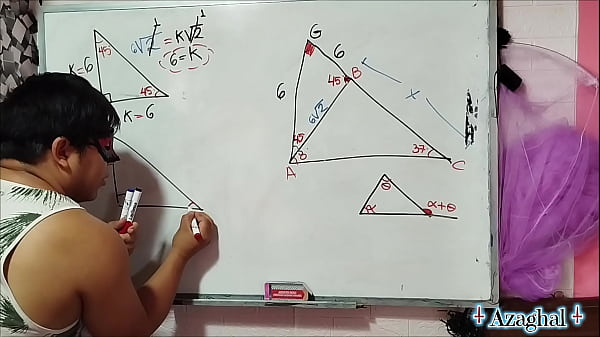 K=6
45
45
K=6
6√2 = K√2
6=K
G
6
6
45
B
6√2
x
45
8
A
37
C
θ
α
α+θ
Azaghal